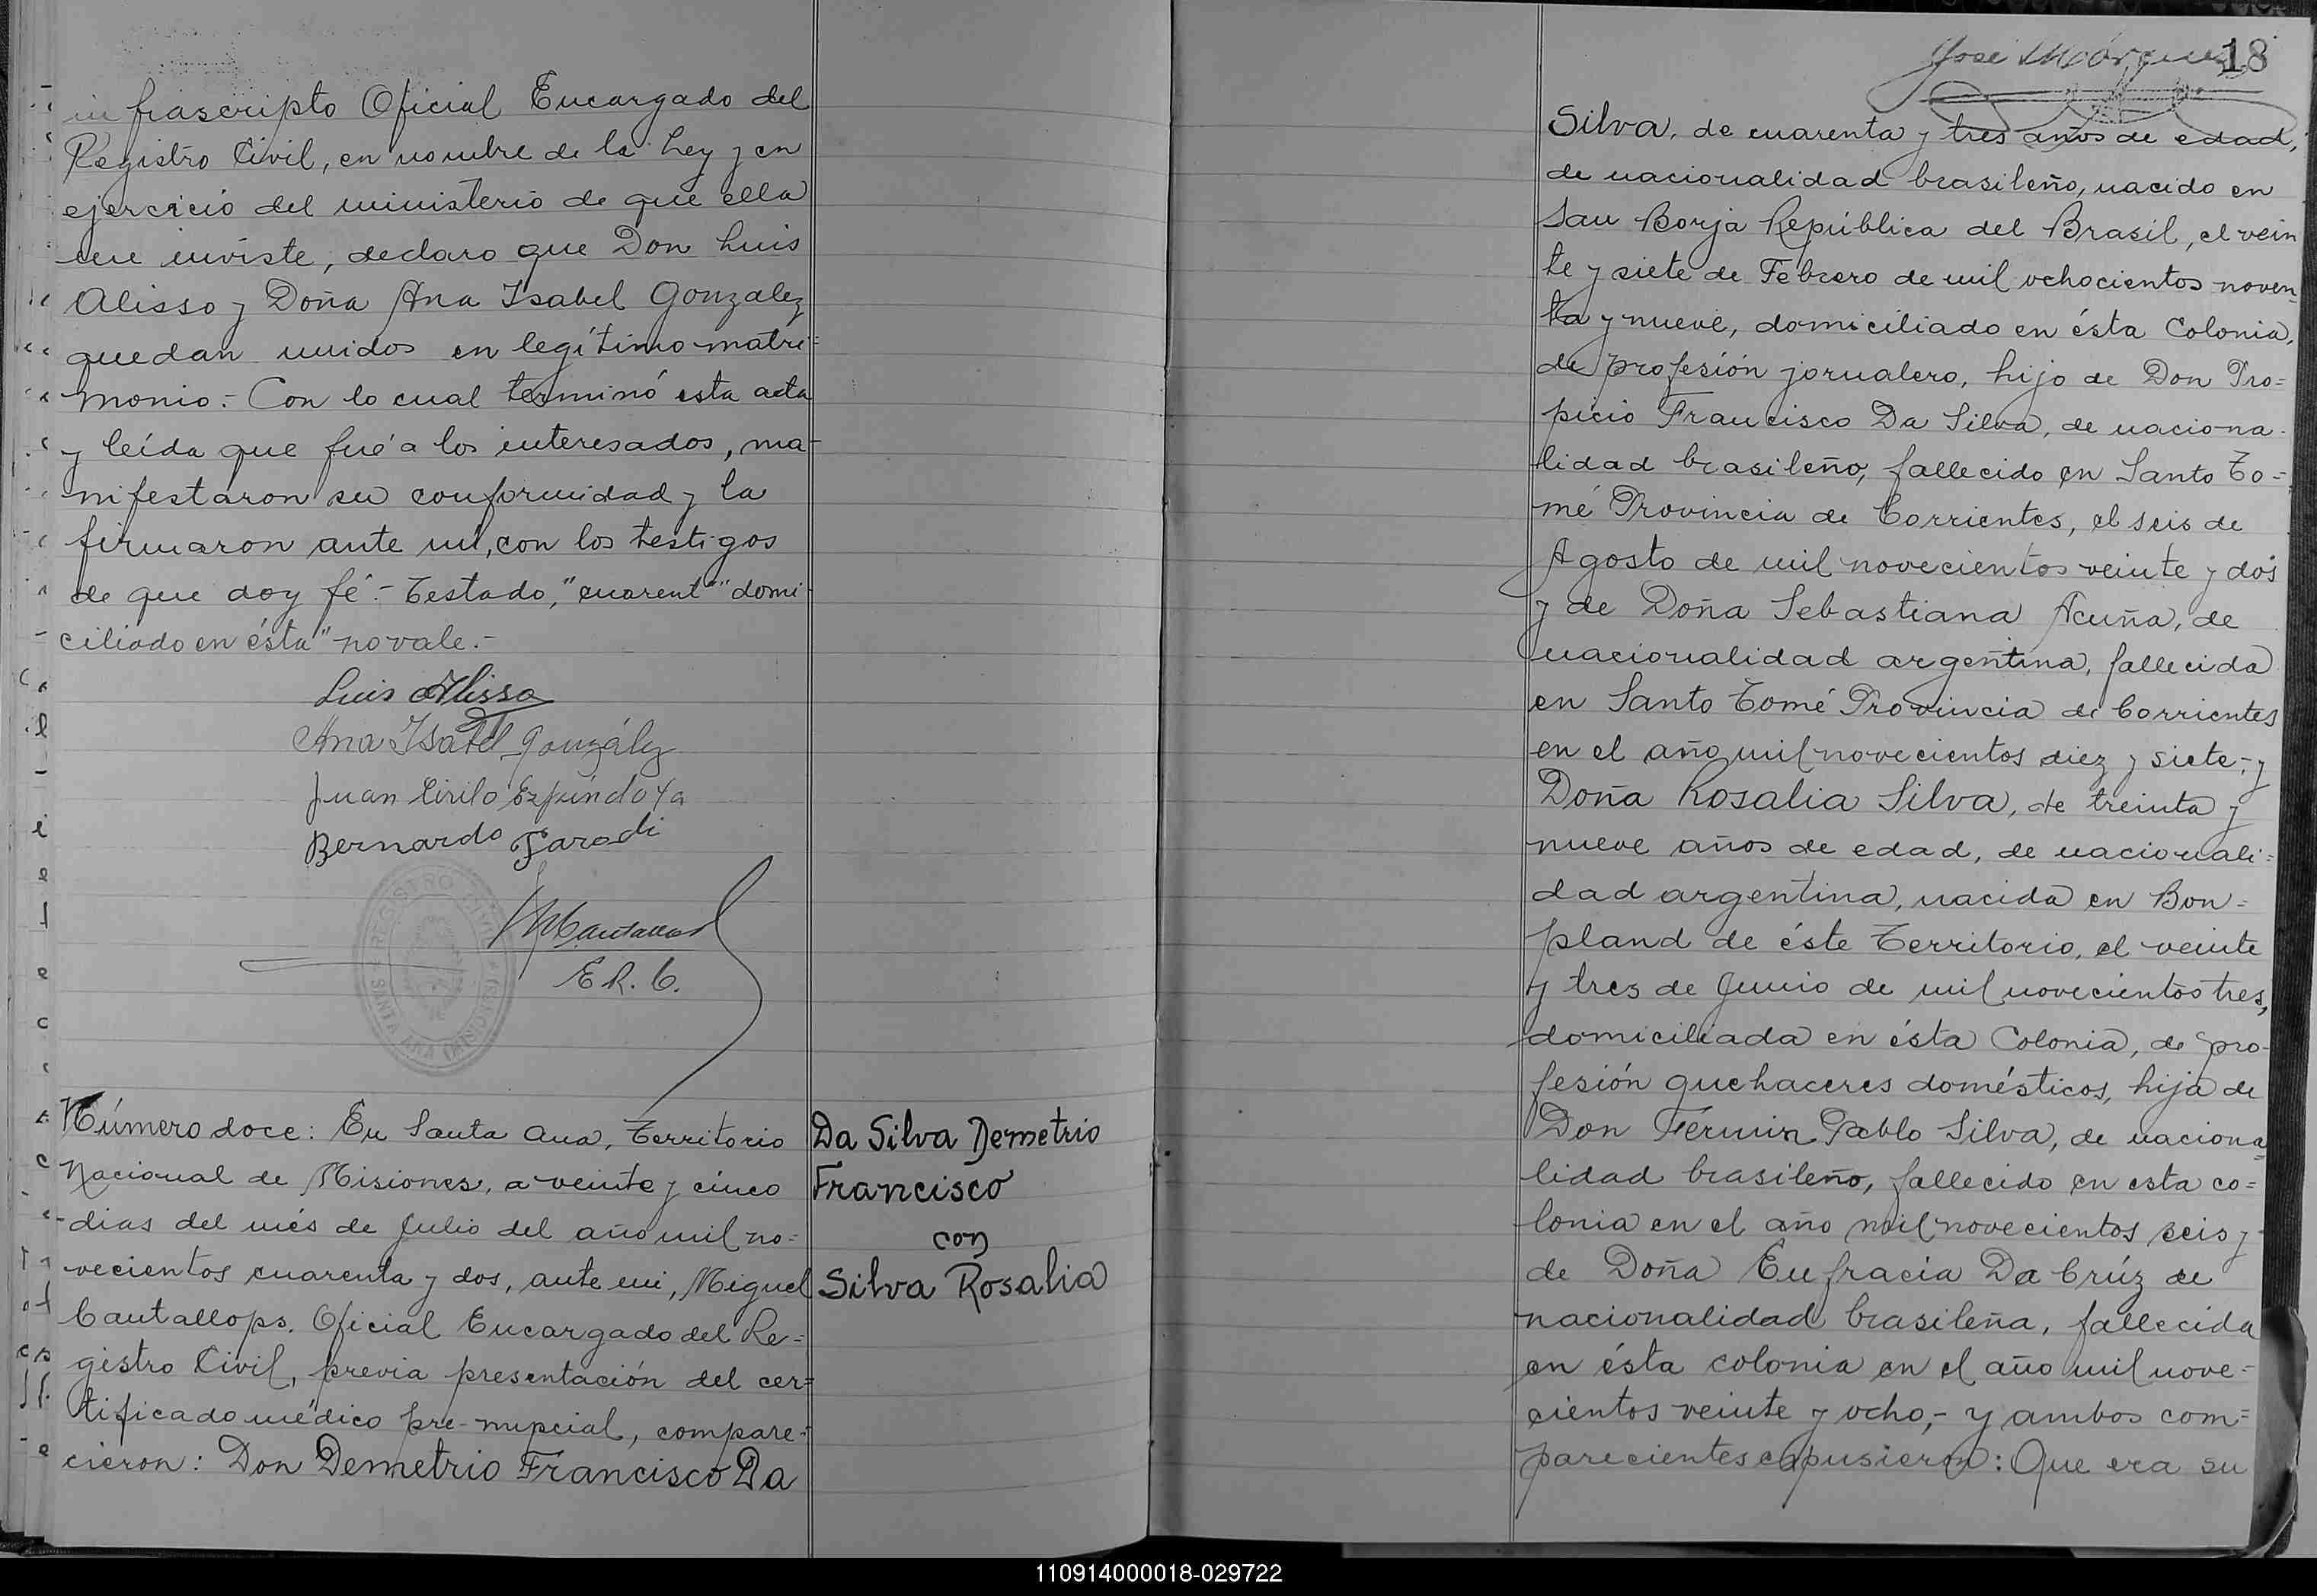 infrascripto Oficial Encargado del
Registro Civil, en nombre de la Ley y en
ejercicio del ministerio de que ella
me inviste, declaro que Don Luis
Alisso y Doña Ana Isabel Gonzalez
quedan unidos en legítimo matri=
monio.- Con lo cual terminó esta acta
y leída que fué a los interesados, ma-
nifestaron su conformidad y la
firmaron ante mí, con los testigos
de que doy fé.- Testado, "cuarent" "domi-
ciliado en ésta" no vale.-
Luis Alisso
Ana Isabel González
Juan Cirilo Espíndola
Bernardo Parodi
REGISTRO CIVIL
SANTA ANA (MISIONES)
MCantallops
E.R.C.
Número doce: En Santa Ana, Territorio
Nacional de Misiones, a veinte y cinco
dias del més de Julio del año mil no=
vecientos cuarenta y dos, ante mi, Miguel
Cantallops, Oficial Encargado del Re=
gistro Civil, previa presentación del cer=
tificado médico pre-nupcial, compare=
cieron: Don Demetrio Francisco Da
Da Silva Demetrio
Francisco
con
Silva Rosalia
José Márquez
18
Silva, de cuarenta y tres años de edad,
de nacionalidad brasileño, nacido en
San Borja República del Brasil, el vein
te y siete de Febrero de mil ochocientos noven=
ta y nueve, domiciliado en ésta Colonia,
de profesión jornalero, hijo de Don Pro=
picio Francisco Da Silva, de naciona-
lidad brasileño, fallecido en Santo To=
mé Provincia de Corrientes, el seis de
Agosto de mil novecientos veinte y dos
y de Doña Sebastiana Acuña, de
nacionalidad argentina, fallecida
en Santo Tomé Provincia de Corrientes
en el año mil novecientos diez y siete,- y
Doña Rosalia Silva, de treinta y
nueve años de edad, de nacionali=
dad argentina, nacida en Bon=
pland de éste Territorio, el veinte
y tres de Junio de mil novecientos tres,
domiciliada en ésta Colonia, de pro-
fesión quehaceres domésticos, hija de
Don Férmin Pablo Silva, de naciona=
lidad brasileño, fallecido en esta co=
lonia en el año mil novecientos seis y
de Doña Eufracia Da Crúz de
nacionalidad brasileña, fallecida
en ésta colonia en el año mil nove=
cientos veinte y ocho,- y ambos com=
parecientes expusieron: Que era su
110914000018-029722